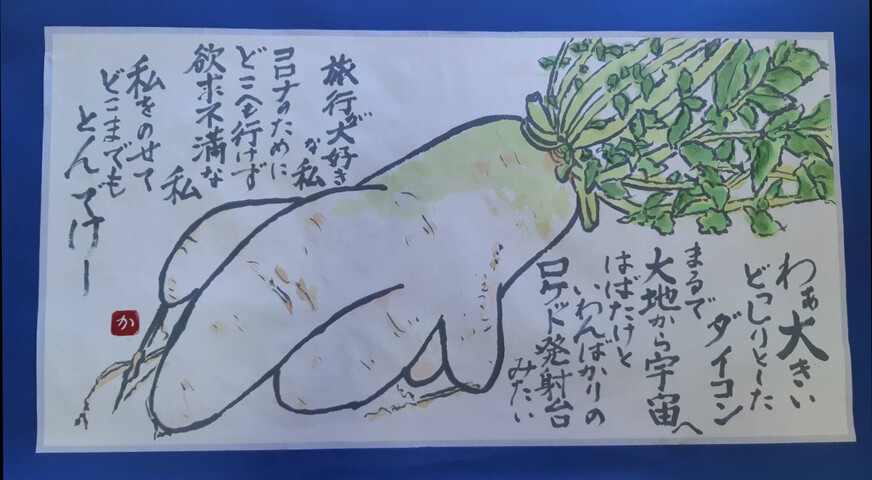 わあ大きい
どっしりとした
ダイコン
まるで
大地から宇宙へ
はばたけと
いわんばかりの
ロケット発射台
みたい
旅行が大好き
な私
コロナのために
どこへも行けず
欲求不満な
私
私をのせて
どこまでも
とんでけー
か